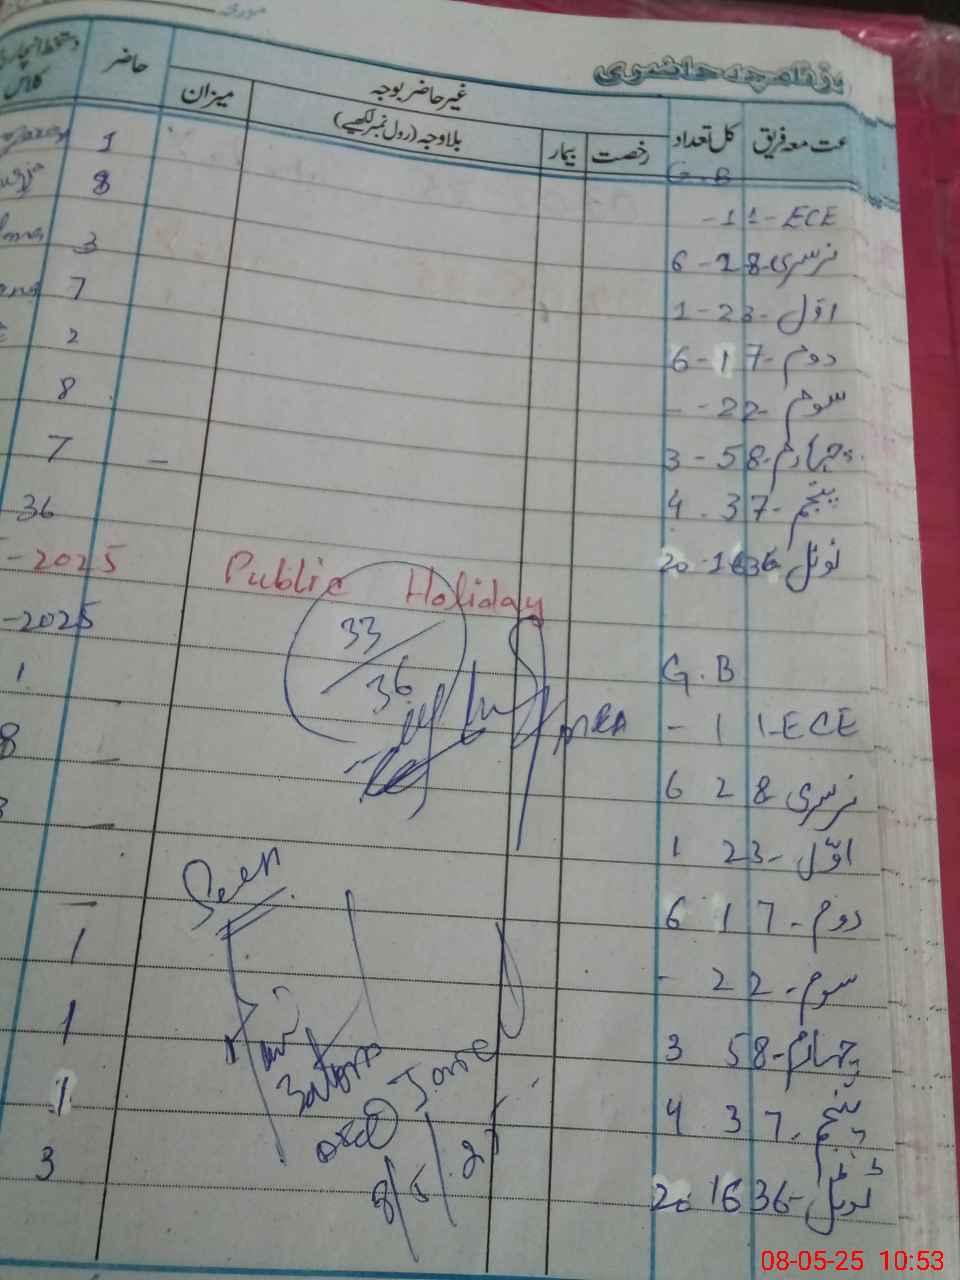 روزنامچہ حاضری
جماعت معہ فریق کل تعداد رخصت بیمار غیر حاضر بوجہ بلاوجہ (رول نمبر لکھیے) میزان حاضر
G.B
ECE -1 1 - 1
نرسری -8 2 - 6 8
اوّل -3 2 - 1 3
دوم -7 1 - 6 7
سوم -2 2 - - 2
چہارم -8 5 - 3 8
پنجم -7 3 . 4 7
ٹوٹل -36 16 - 20 36
Public Holiday - 2025
-2025
33/36
G.B
ECE -1 1 - 1
نرسری -8 2 6 8
اوّل -3 2 1
دوم -7 1 6
سوم -2 2 - 1
چہارم -8 5 3 1
پنجم -7 3 4 1
ٹوٹل -36 16 20 3
Seen
8/5/25
08-05-25 10:53